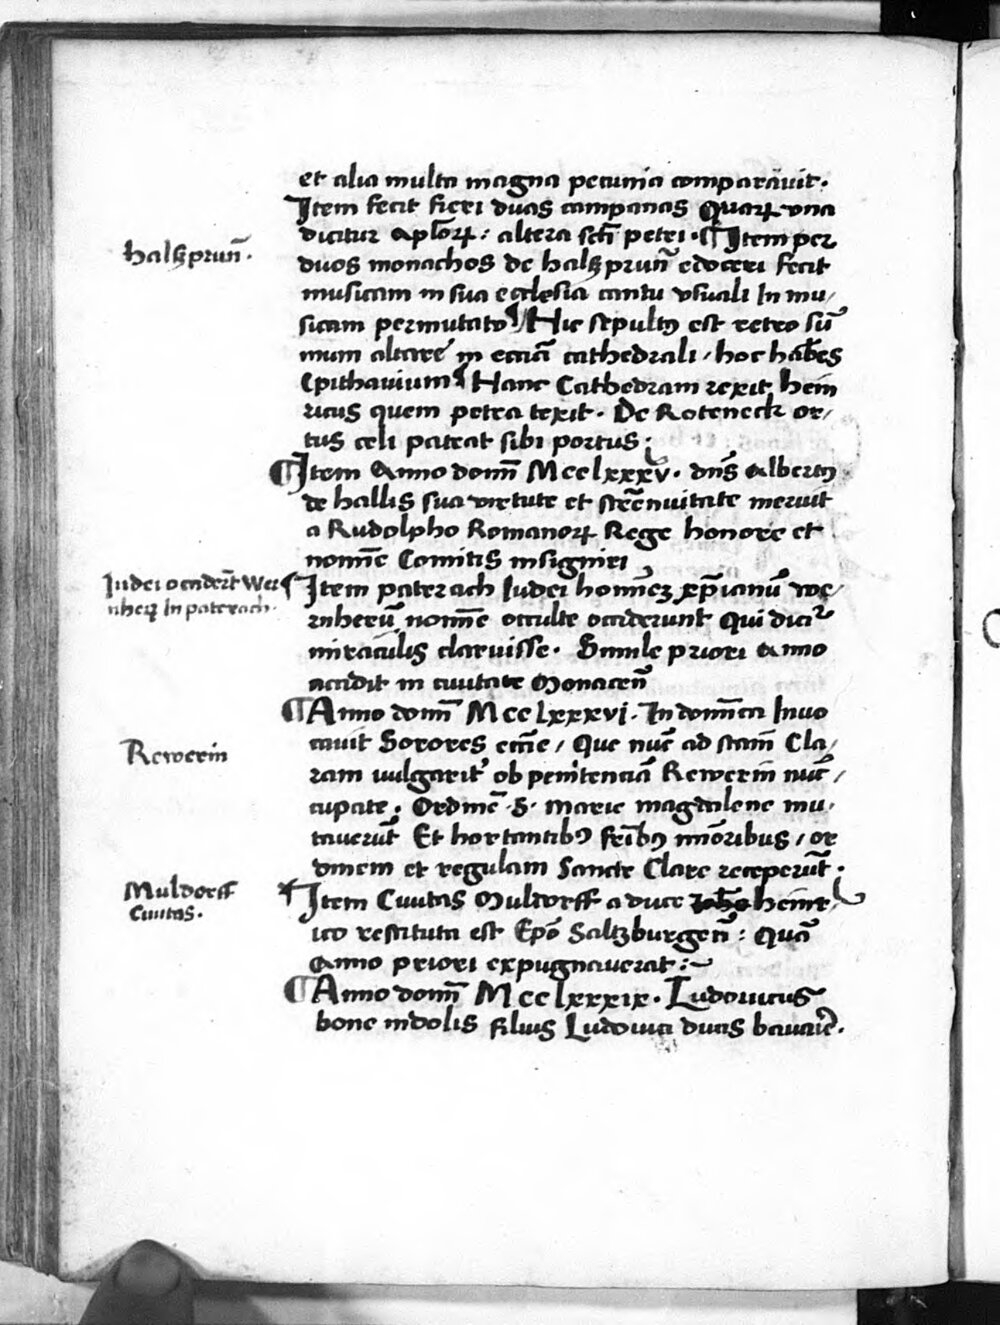 et alia multa magna pecunia comparauit.
Item fecit fieri duas campanas Quaꝝ vna
dicitur apl̄oꝝ : altera sct̄i petri . ¶ Item per
halsprun̄ .
duos monachos de halsprun̄ edoceri fecit
musicam in sua ecclesia cantu vsuali In mu/
sicam permutato ¶ Hic sepultꝰ est retro sū
mum altare in ecciā cathedrali / hoc hab̄es
Epithauium ¶ Hanc Cathedram rexit hein
ricus quem petra texit . De Roteneck or/
tus celi pateat sibi portus :
¶ Item Anno domī Mcclxxxv . dn̄s Albertꝰ
de hallis sua virtute et strēnuitate meruit
a Rudolpho Romanoꝝ Rege honore et
nomīe Comitis insigniri
Iudei occiderūt Wer
nherꝫ In paterach .
¶ Item paterach Iudei homīeꝫ xp̄ianū we/
rnherū nomīe occulte occiderunt Qui dicir̄
miraculis claruisse . Simile priori Anno
accidit in ciuitate Monacen̄
¶ Anno domī Mcclxxxvi . In domīca Inuo
cauit Sorores eccīe / Que nūc ad sctam̄ Cla/
Rewerin
ram uulgarit᷑ ob penitenciā Rewerin nūc/
cupate . Ordinē S . Marie magdalene mu/
tauerūt Et hortantibꝰ frībꝰ mīoribus / or
dinem et regulam Sancte Clare receperūt .
Muldorff
Ciuitas .
¶ Item Ciuitas Muldorff a duce heinr/
ico restituta est Epō Saltzburgen̄ : Quā
Anno priori expugnauerat :~
¶ Anno domī Mcclxxxix . Ludouicus
bone indolis filius Ludouici ducis bauarie .